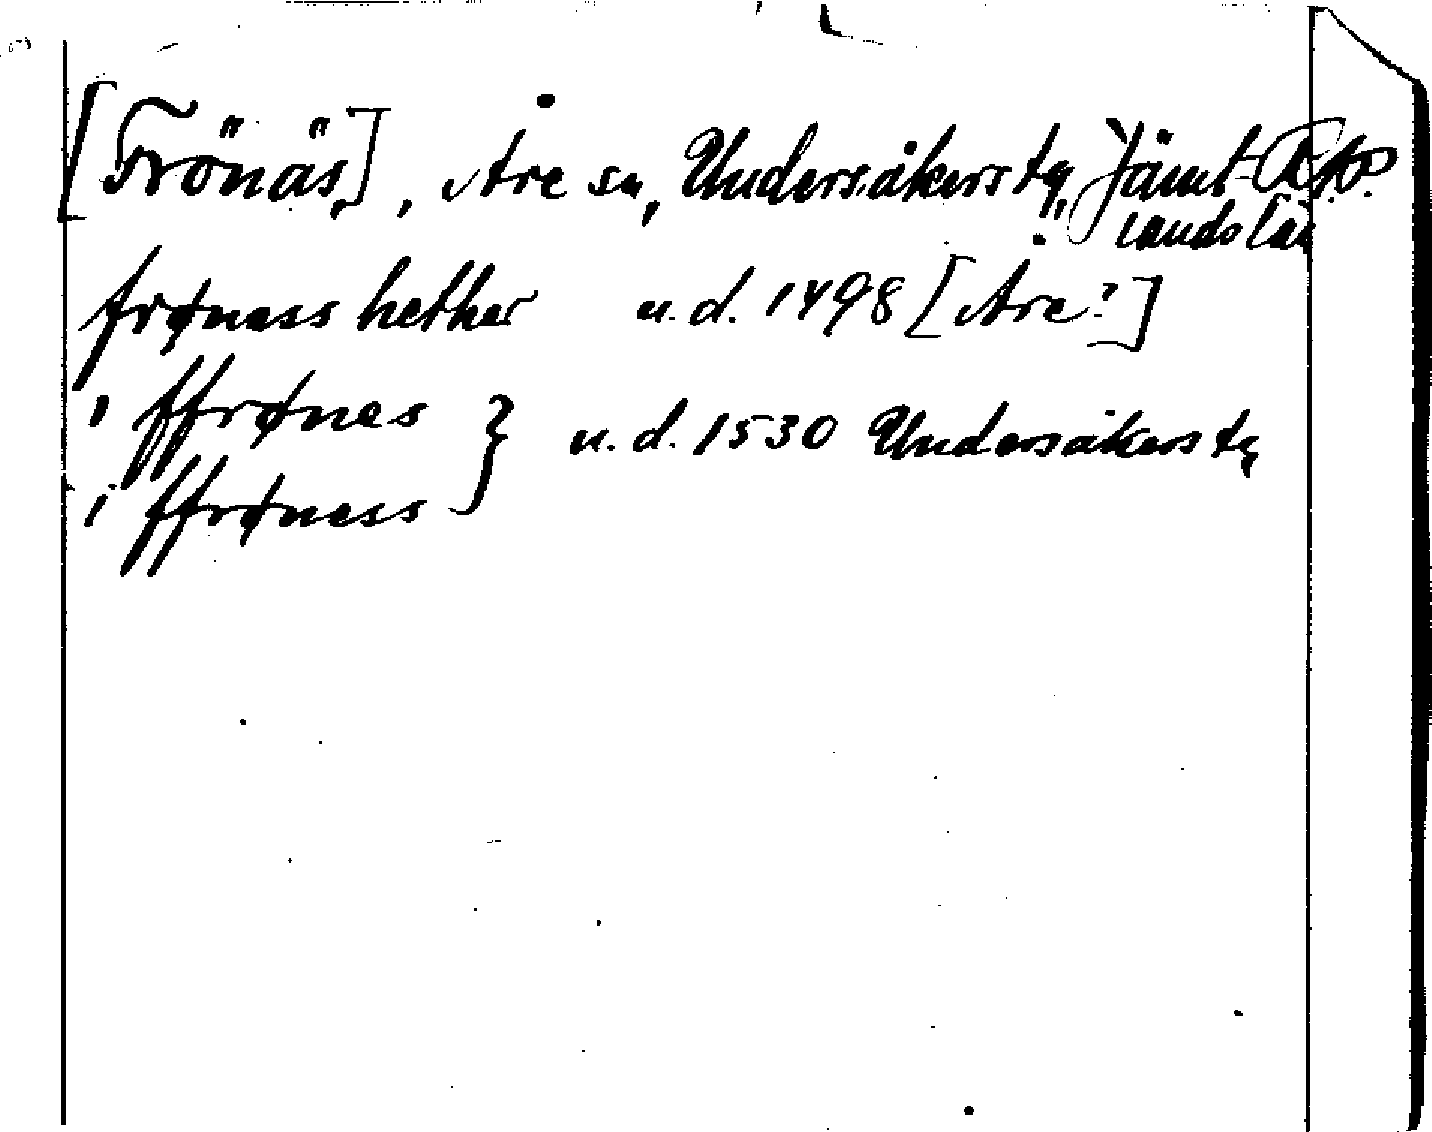 [Frönäs], Åre sn, Undersåkers tg, Jämt-
lands län
frøness hether u.d. 1498 [Åre?]
i ffrønes } u.d. 1530 Undersåkers tg
i ffrøness